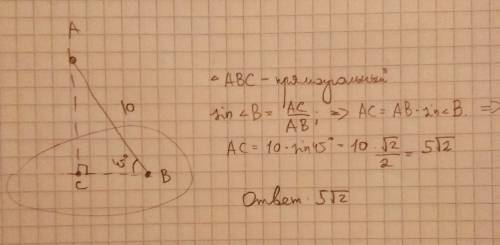 A
10
45°
C
B
△ABC – прямоугольный
sin∠B = AC/AB; => AC = AB · sin∠B. =>
AC = 10 · sin45° = 10 · √2/2 = 5√2
Ответ: 5√2